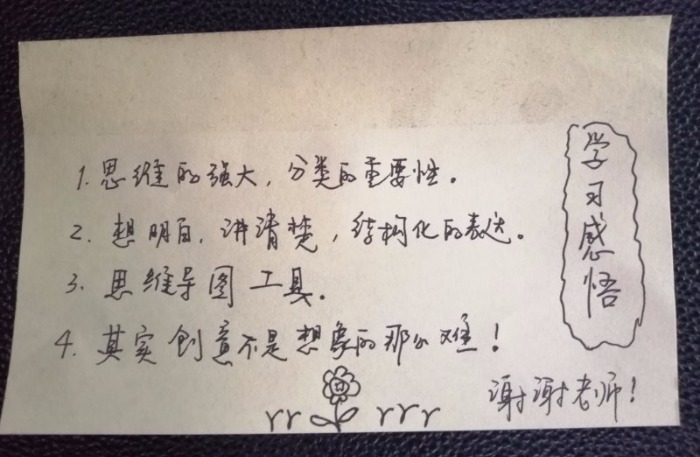 学习感悟
1. 思维的强大，分类的重要性。
2. 想明白，讲清楚，结构化的表达。
3. 思维导图工具。
4. 其实创意不是想象的那么难！
谢谢老师！